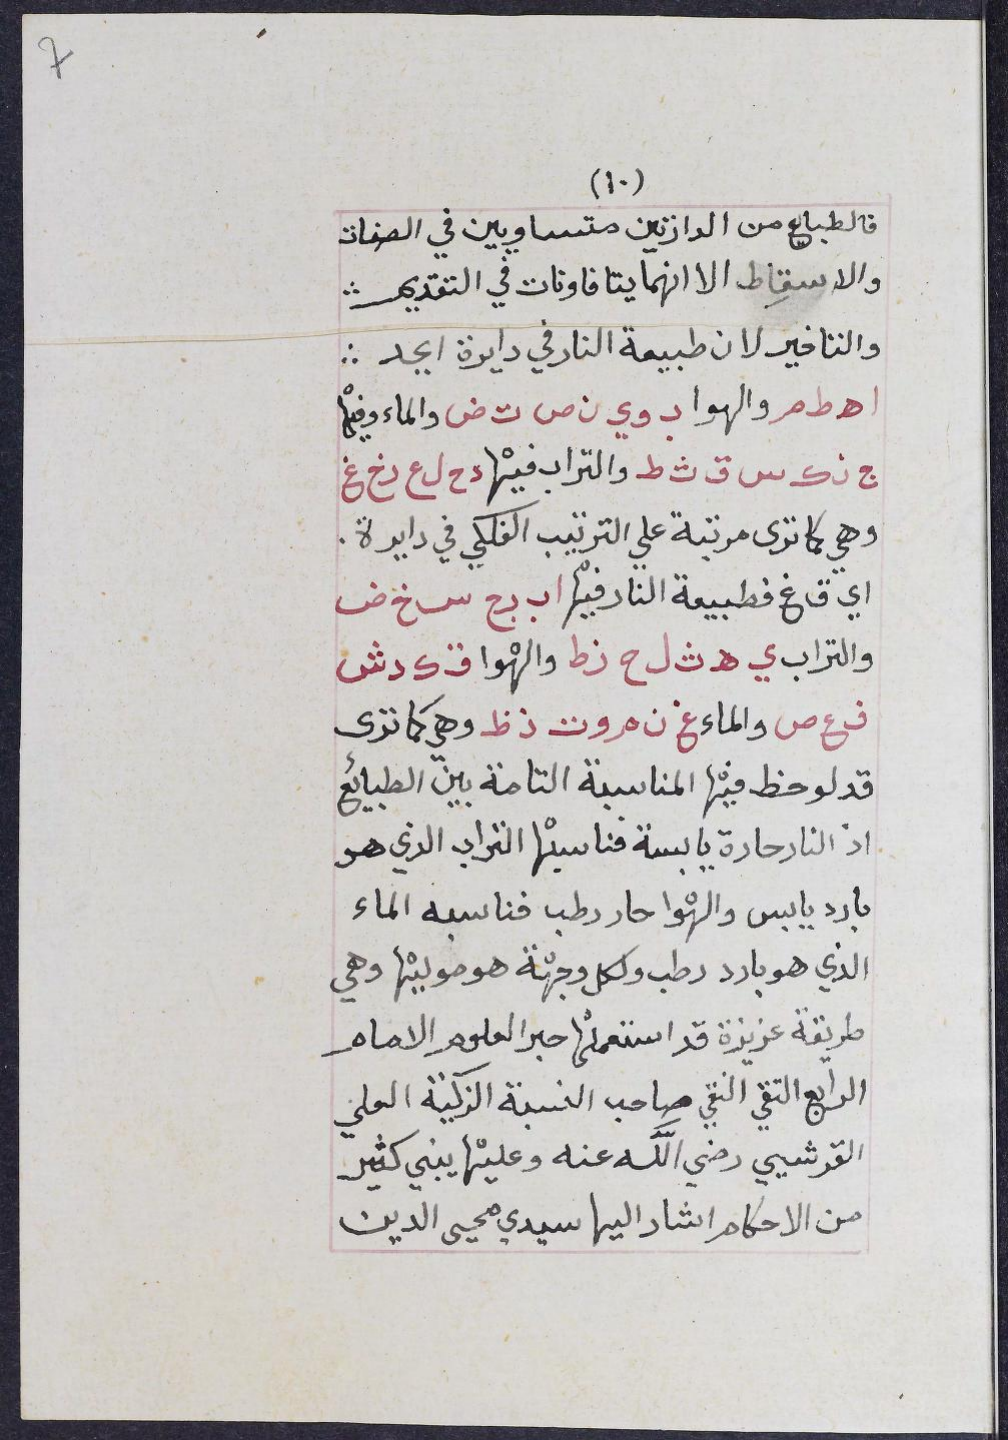 7
(١٠)
فالطبايع من الدازتين متساويين في الصفات
والاسقاط الا انهما يتافاوتات في التقديم ∴
والتاخير لان طبيعة النار في دايرة ابجد ∴
ا ه ط م والهوا ب و ي ن ص ت ض والماء وفيها
ج ز ك س ق ث ظ والتراب فيها د ح ل ع ر خ غ
وهي كما ترى مرتبة علي الترتيب الفلكي في دايرة .
اي ق غ فطبيعة النار فيها ا ب ج س خ ض
والتراب ي ه ث ل ح ز ط والهوا ق ك د ش
ف ع ص والماء غ ن م و ت ذ ظ وهي كما ترى
قد لوحظ فيها المناسبة التامة بين الطبيائع
اذ النار حارة يابسة فناسبها التراب الذي هو
بارد يابس والهوا حار رطب فناسبه الماء
الذي هو بارد رطب ولكل وجهة هو موليها وهي
طريقة عزيزة قد استعملها حبر العلوم الامام
الرابع التقي النقي صاحب النسبة الزكية العلي
القرشيي رضي الله عنه وعليها يبني كثير
من الاحكام اشار اليها سيدي محيى الدين